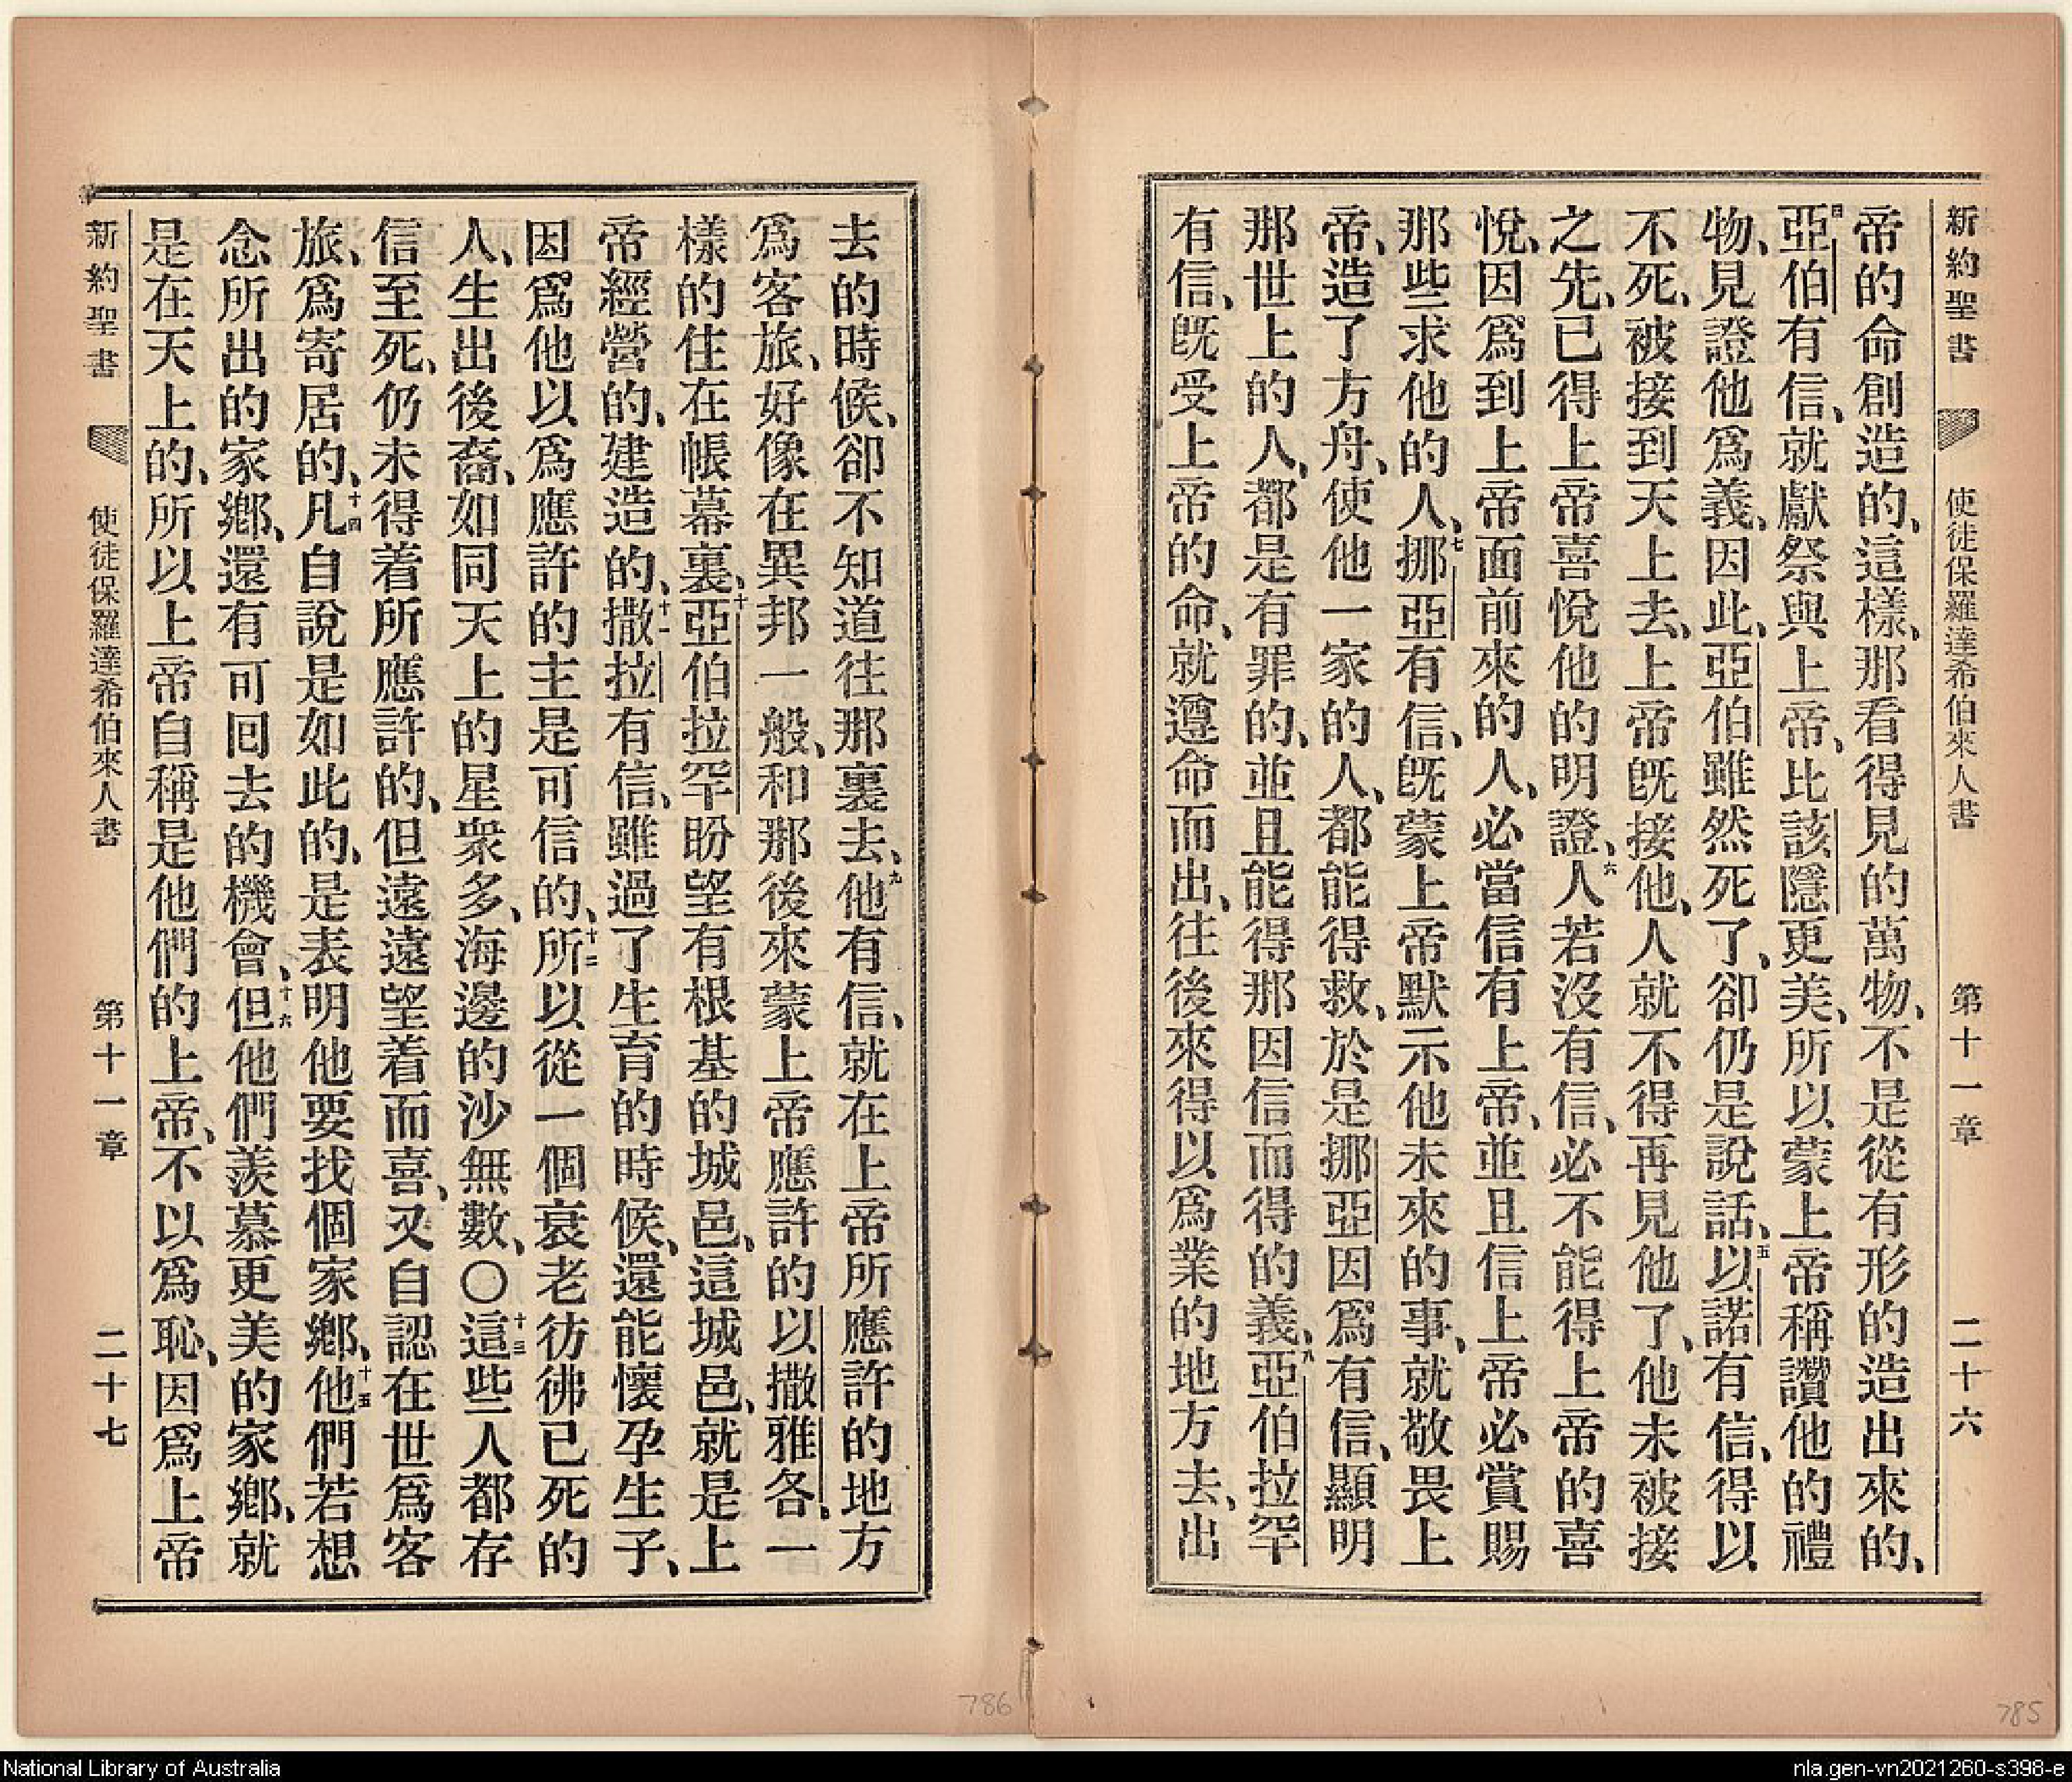 新約聖書 使徒保羅達希伯來人書 第十一章 二十六
帝的命創造的、這樣、那看得見的萬物、不是從有形的造出來的、
四亞伯有信、就獻祭與上帝、比該隱更美、所以蒙上帝稱讚他的禮
物、見證他爲義、因此、亞伯雖然死了、卻仍是說話、五以諾有信、得以
不死、被接到天上去、上帝旣接他、人就不得再見他了、他未被接
之先、已得上帝喜悅他的明證、六人若沒有信、必不能得上帝的喜
悅、因爲到上帝面前來的人、必當信有上帝、並且信上帝必賞賜
那些求他的人、七挪亞有信、旣蒙上帝默示他未來的事、就敬畏上
帝、造了方舟、使他一家的人、都能得救、於是挪亞因爲有信、顯明
那世上的人、都是有罪的、並且能得那因信而得的義、八亞伯拉罕
有信、旣受上帝的命、就遵命而出、往後來得以爲業的地方去、出
去的時候、卻不知道往那裏去、九他有信、就在上帝所應許的地方
爲客旅、好像在異邦一般、和那後來蒙上帝應許的以撒雅各、一
樣的住在帳幕裏、十亞伯拉罕盼望有根基的城邑、這城邑、就是上
帝經營的、建造的、十一撒拉有信、雖過了生育的時候、還能懷孕生子、
因爲他以爲應許的主是可信的、十二所以從一個衰老彷彿已死的
人、生出後裔、如同天上的星衆多、海邊的沙無數、〇十三這些人都存
信至死、仍未得着所應許的、但遠遠望着而喜、又自認在世爲客
旅、爲寄居的、十四凡自說是如此的、是表明他要找個家鄕、十五他們若想
念所出的家鄕、還有可囘去的機會、十六但他們羨慕更美的家鄕、就
是在天上的、所以上帝自稱是他們的上帝、不以爲恥、因爲上帝
新約聖書 使徒保羅達希伯來人書 第十一章 二十七
786
785
National Library of Australia
nla.gen-vn2021260-s398-e